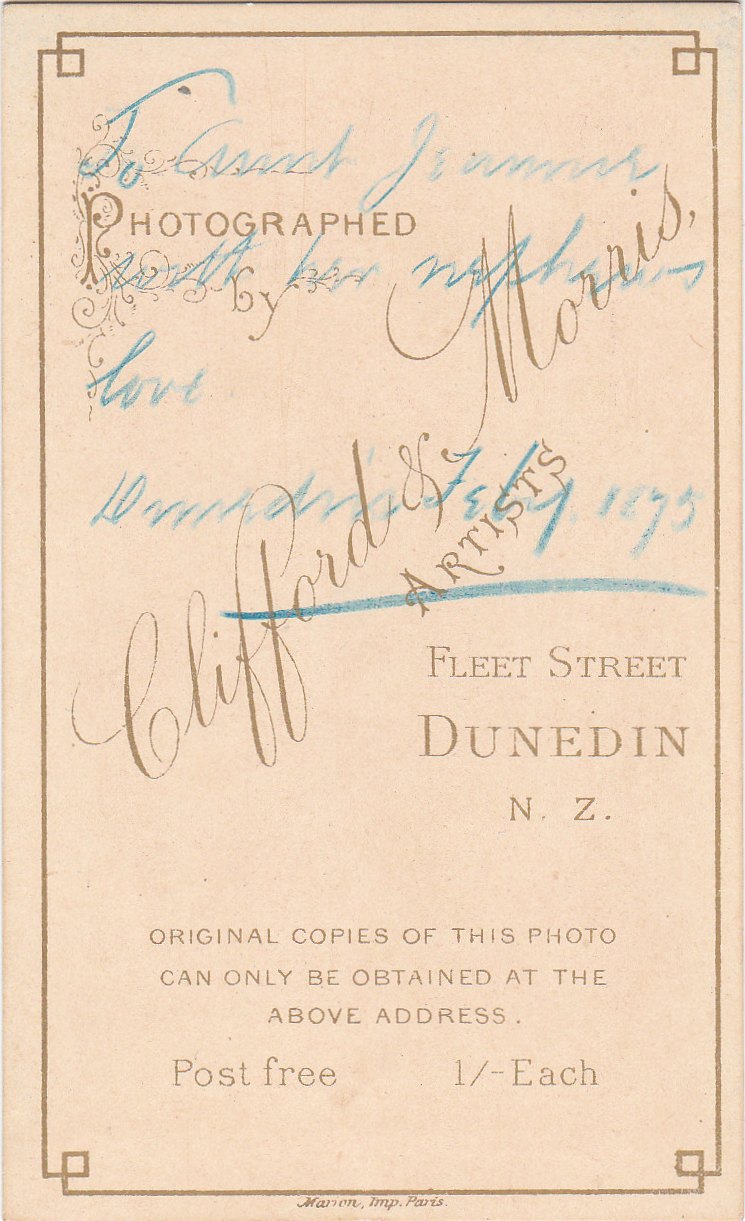 To Aunt Jeannie
PHOTOGRAPHED
with her nephews
by
love.
Clifford & Morris,
Dunedin Feby. 1875
ARTISTS
FLEET STREET
DUNEDIN
N. Z.
ORIGINAL COPIES OF THIS PHOTO
CAN ONLY BE OBTAINED AT THE
ABOVE ADDRESS.
Post free 1/- Each
Marion, Imp. Paris.